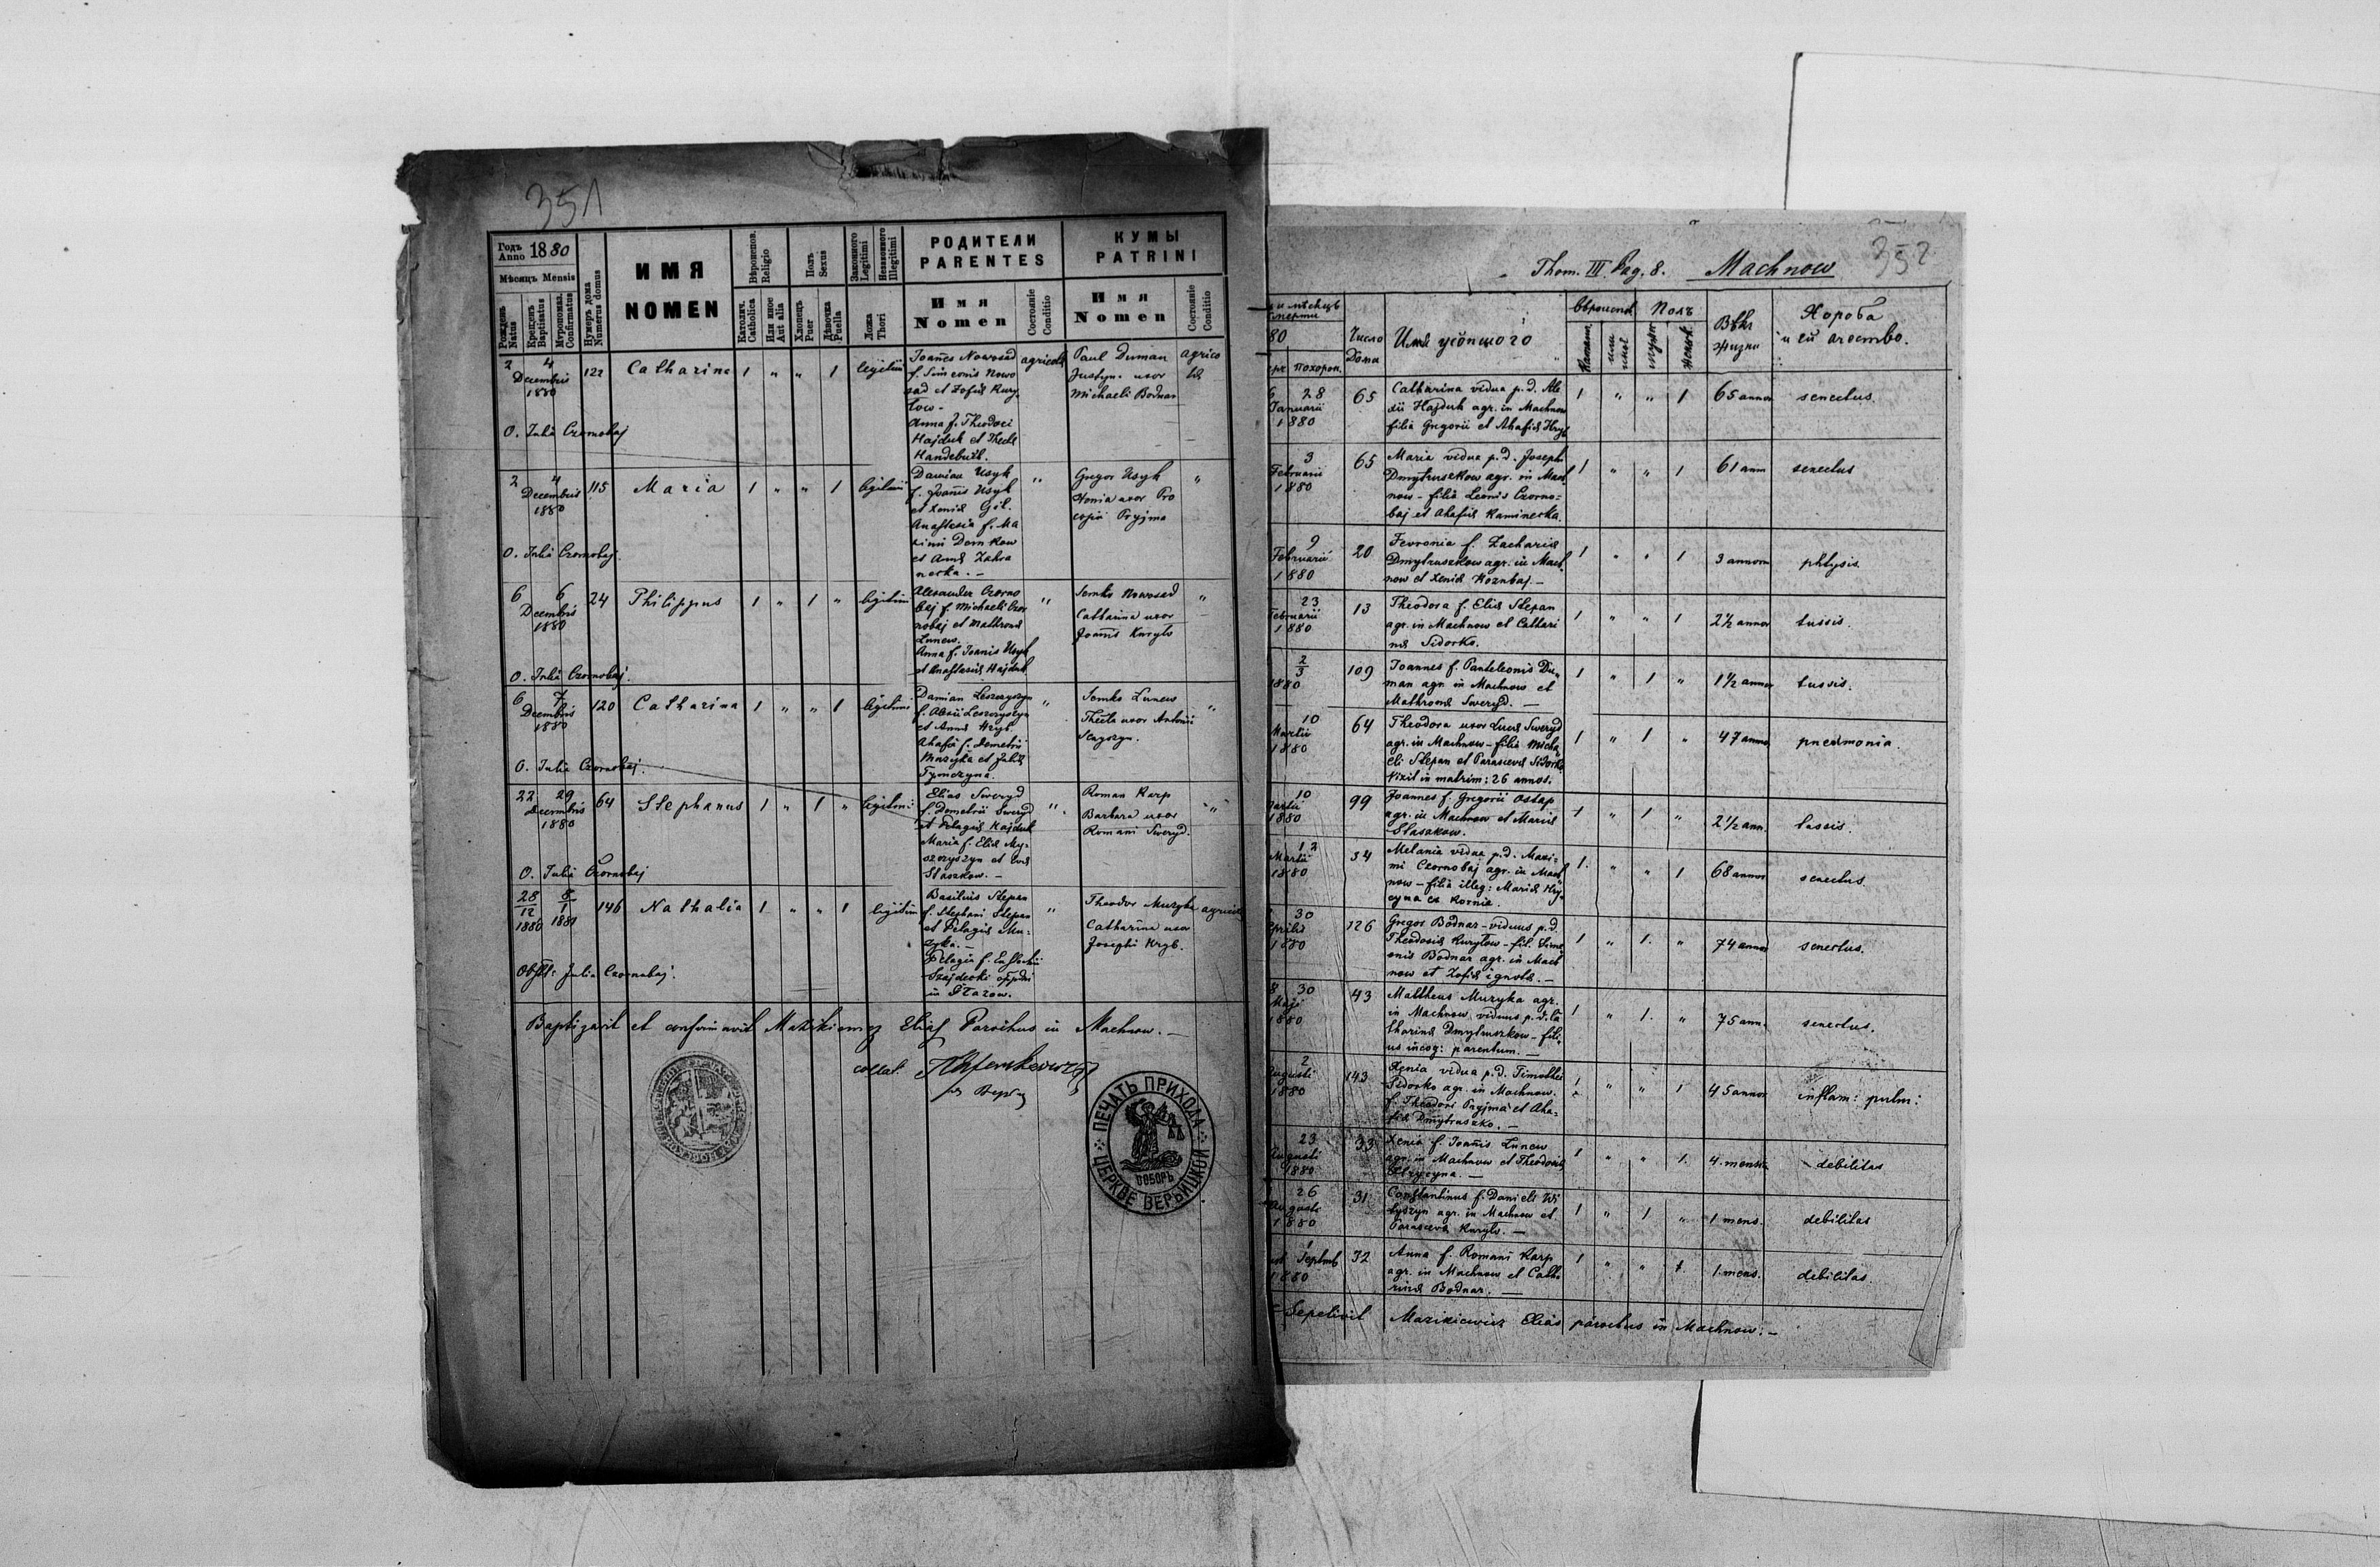 351
Годъ Anno 1880
Мѣсяцъ Mensis
Рожденъ Natus
Крещенъ Baptisatus
Мѵропомаз. Confirmatus
Нумеръ дома Numerus domus
ИМЯ
NOMEN
Вѣроисповѣд. Religio
Католич. Catholica
Или иное Aut alia
Полъ Sexus
Хлопецъ Puer
Дѣвочка Puella
Законного Legitimi
Незаконного Illegitimi
Ложа Thori
РОДИТЕЛИ
PARENTES
Имя Nomen
Состояніе Conditio
КУМЫ
PATRINI
Имя Nomen
Состояніе Conditio
2 4 Decembris 1880
122 Catharina 1 " " 1 legitimi
Joannes Nowosad
f. Simeonis Nowo
sad et Zofiæ Kury
low -
Anna f. Theodori
Hajduk et Theclæ
agricola
Paul Duman
Justyna uxor
Michaeli Bodnar
agrico
la
O. Julia Czornobaj
2 4 Decembris 1880
115 Maria 1 " " 1 legitimi
Damian Usyk
f. Joannis Usyk
et Xeniæ Gil.
Anastasia f. Ma
ximi Domkow
et Annæ Zahra
necka. -
"
Gregor Usyk
Xonia uxor Pro
copii Pryjma
"
O. Julia Czornobaj.
6 6 Decembris 1880
24 Philippus 1 " 1 " legitimi
Alexander Czorno
baj f. Michaeli Czor
nobaj et Mathronæ
Lunew.
Anna f. Joannis Usyk
et Anastasiæ Hajduk
"
Semko Nowosad
Catharina uxor
Joannis Kurylo
"
O. Julia Czornobaj.
6 7 Decembris 1880
120 Catharina 1 " " 1 legitimi
Damian Leszczyszyn
f. Alexii Leszczyszyn
et Annæ Hryb.
Ahafia f. Demetrii
Muzyka et Juliæ
Tymczyna.
"
Semko Lunew
Thecla uxor Antonii
"
O. Julia Czornobaj.
22 29 Decembris 1880
64 Stephanus 1 " 1 " legitimi
Elias Sweryd
f. Demetrii Sweryd
et Pelagiæ Hajduk
Maria f. Eliæ My-
szczyszyn et Evæ
Staszkow. -
"
Roman Karp
Barbara uxor
Romani Sweryd.
"
O. Julia Czornobaj
28/12 1880 8/1 1881
146 Nathalia 1 " " 1 legitimi
Basilius Stepan
f. Stephani Stepan
et Pelagiæ Mu-
zyka. -
Pelagia f. Eustachii
Szajdecki oppidi
in
"
Theodor Muzyka
Catharina uxor
Josephi Hryb.
agricola
Obst: Julia Czornobaj.
Baptizavit et confirmavit Mazikiewicz Elias Parochus in Machnow. -
collat.
ПЕЧАТЬ ПРИХОДА
ЦЕРКВЕ ВЕРБИЦКОЙ
СОБОРЪ
Thom. III. Pag. 8. Machnow 352
и мѣсяцъ
смерти
80
похорон.
Число
Дома
Имя усопшого
Вѣроиспов
Катол.
или иное
Полъ
муж
женск
Вѣкъ
жизни
Хороба
и еи
28 Januarii 1880
65
Catharina vidua p.d. Ale
xii Hajduk agr. in Machnow
filia Gregorii et Ahafiæ Hryb
1 " " 1 65 annor senectus.
3 Februarii 1880
65
Maria vidua p.d. Josephi
Dmytruszkow agr. in Mach
now - filia Leonis Czorno=
baj et Ahafiæ Kaminecka.
1 " " 1 61 ann senectus
9 Februarii 1880
20
Fevronia f. Zachariæ
Dmytruszkow agr. in Mach
now et Xeniæ
1 " " 1 3 annorum phtysis.
23 Februarii 1880
13
Theodora f. Eliæ Stepan
agr. in Machnow et Cathari
næ Sidorko.
1 " " 1 2½ annor tussis.
2/3 1880
109
Joannes f. Panteleonis Du=
man agr. in Machnow et
Mathronæ Sweryd. -
1 " 1 " 1½ annor tussis.
10 Martii 1880
64
Theodora uxor Lucæ Sweryd
agr. in Machnow - filia Micha
eli Stepan et Parascevæ Sidorko
Vixit in matrim: 26 annos.
1 " 1 " 47 annor pneumonia.
10 Martii 1880
99
Joannes f. Gregorii Ostap
agr. in Machnow et Mariæ
Stasakow.
1 " 1 " 2½ ann. tussis.
12 Martii 1880
34
Melania vidua p.d. Maxi=
mi Czornobaj agr. in Mach
now - filia illeg: Mariæ Hry
cyna et Kornia.
1. " " 1 68 annor senectus
30 Aprilis 1880
126
Gregor Bodnar - viduus p.d.
Theodosiæ Kurylow - fil. Sime
onis Bodnar agr. in Mach
now et Zofiæ ignotæ. -
1 " 1. " 74 annor senectus.
8 30 Maji 1880
43
Mattheus Muzyka agr.
in Machnow, viduus p.d. Ca
tharinæ Dmytruszkow - fili=
us incog: parentum. -
1 " 1. " 75 ann. senectus.
2 Augusti 1880
143
Xenia vidua p.d. Timothei
Sidorko agr. in Machnow.
f. Theodori Pryjma et Aha=
fiæ Dmytruszko. -
1 " " 1 45 annor inflam: pulm:
23 Augusti 1880
33
Xenia f. Joannis Lunew
agr. in Machnow et Theodosiæ
1 " " 1. 4. mensi debilitas
26 Augusti 1880
31
Constantinus f. Danieli Wi
tyszyn agr. in Machnow et
Parascevæ Kurylo. -
1 " 1 " 1 mens. debilitas
1 Septemb 1880
32
Anna f. Romani Karp
agr. in Machnow et Catha
rinæ Bodnar. -
1 " " 1. 1. mens. debilitas.
Sepelivit Mazikiewicz Elias parochus in Machnow. -